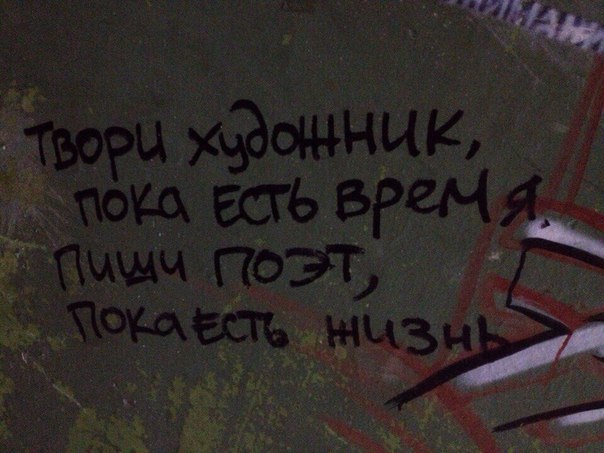 Твори художник,
пока есть время.
Пиши поэт,
пока есть жизнь